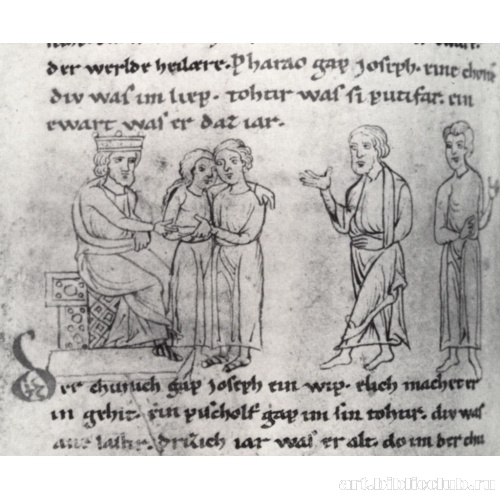 der werlde heilære. Pharao gap joseph. eine chone
div was im liep. tohtir was si putifar. ein
ewart was er daz iar.
Der chunich gap joseph ein wip. elich machet er
in gehit. ein puscholf gap im sin tohtir. div was
iar was er alt. do im der chu
art.biblioclub.ru